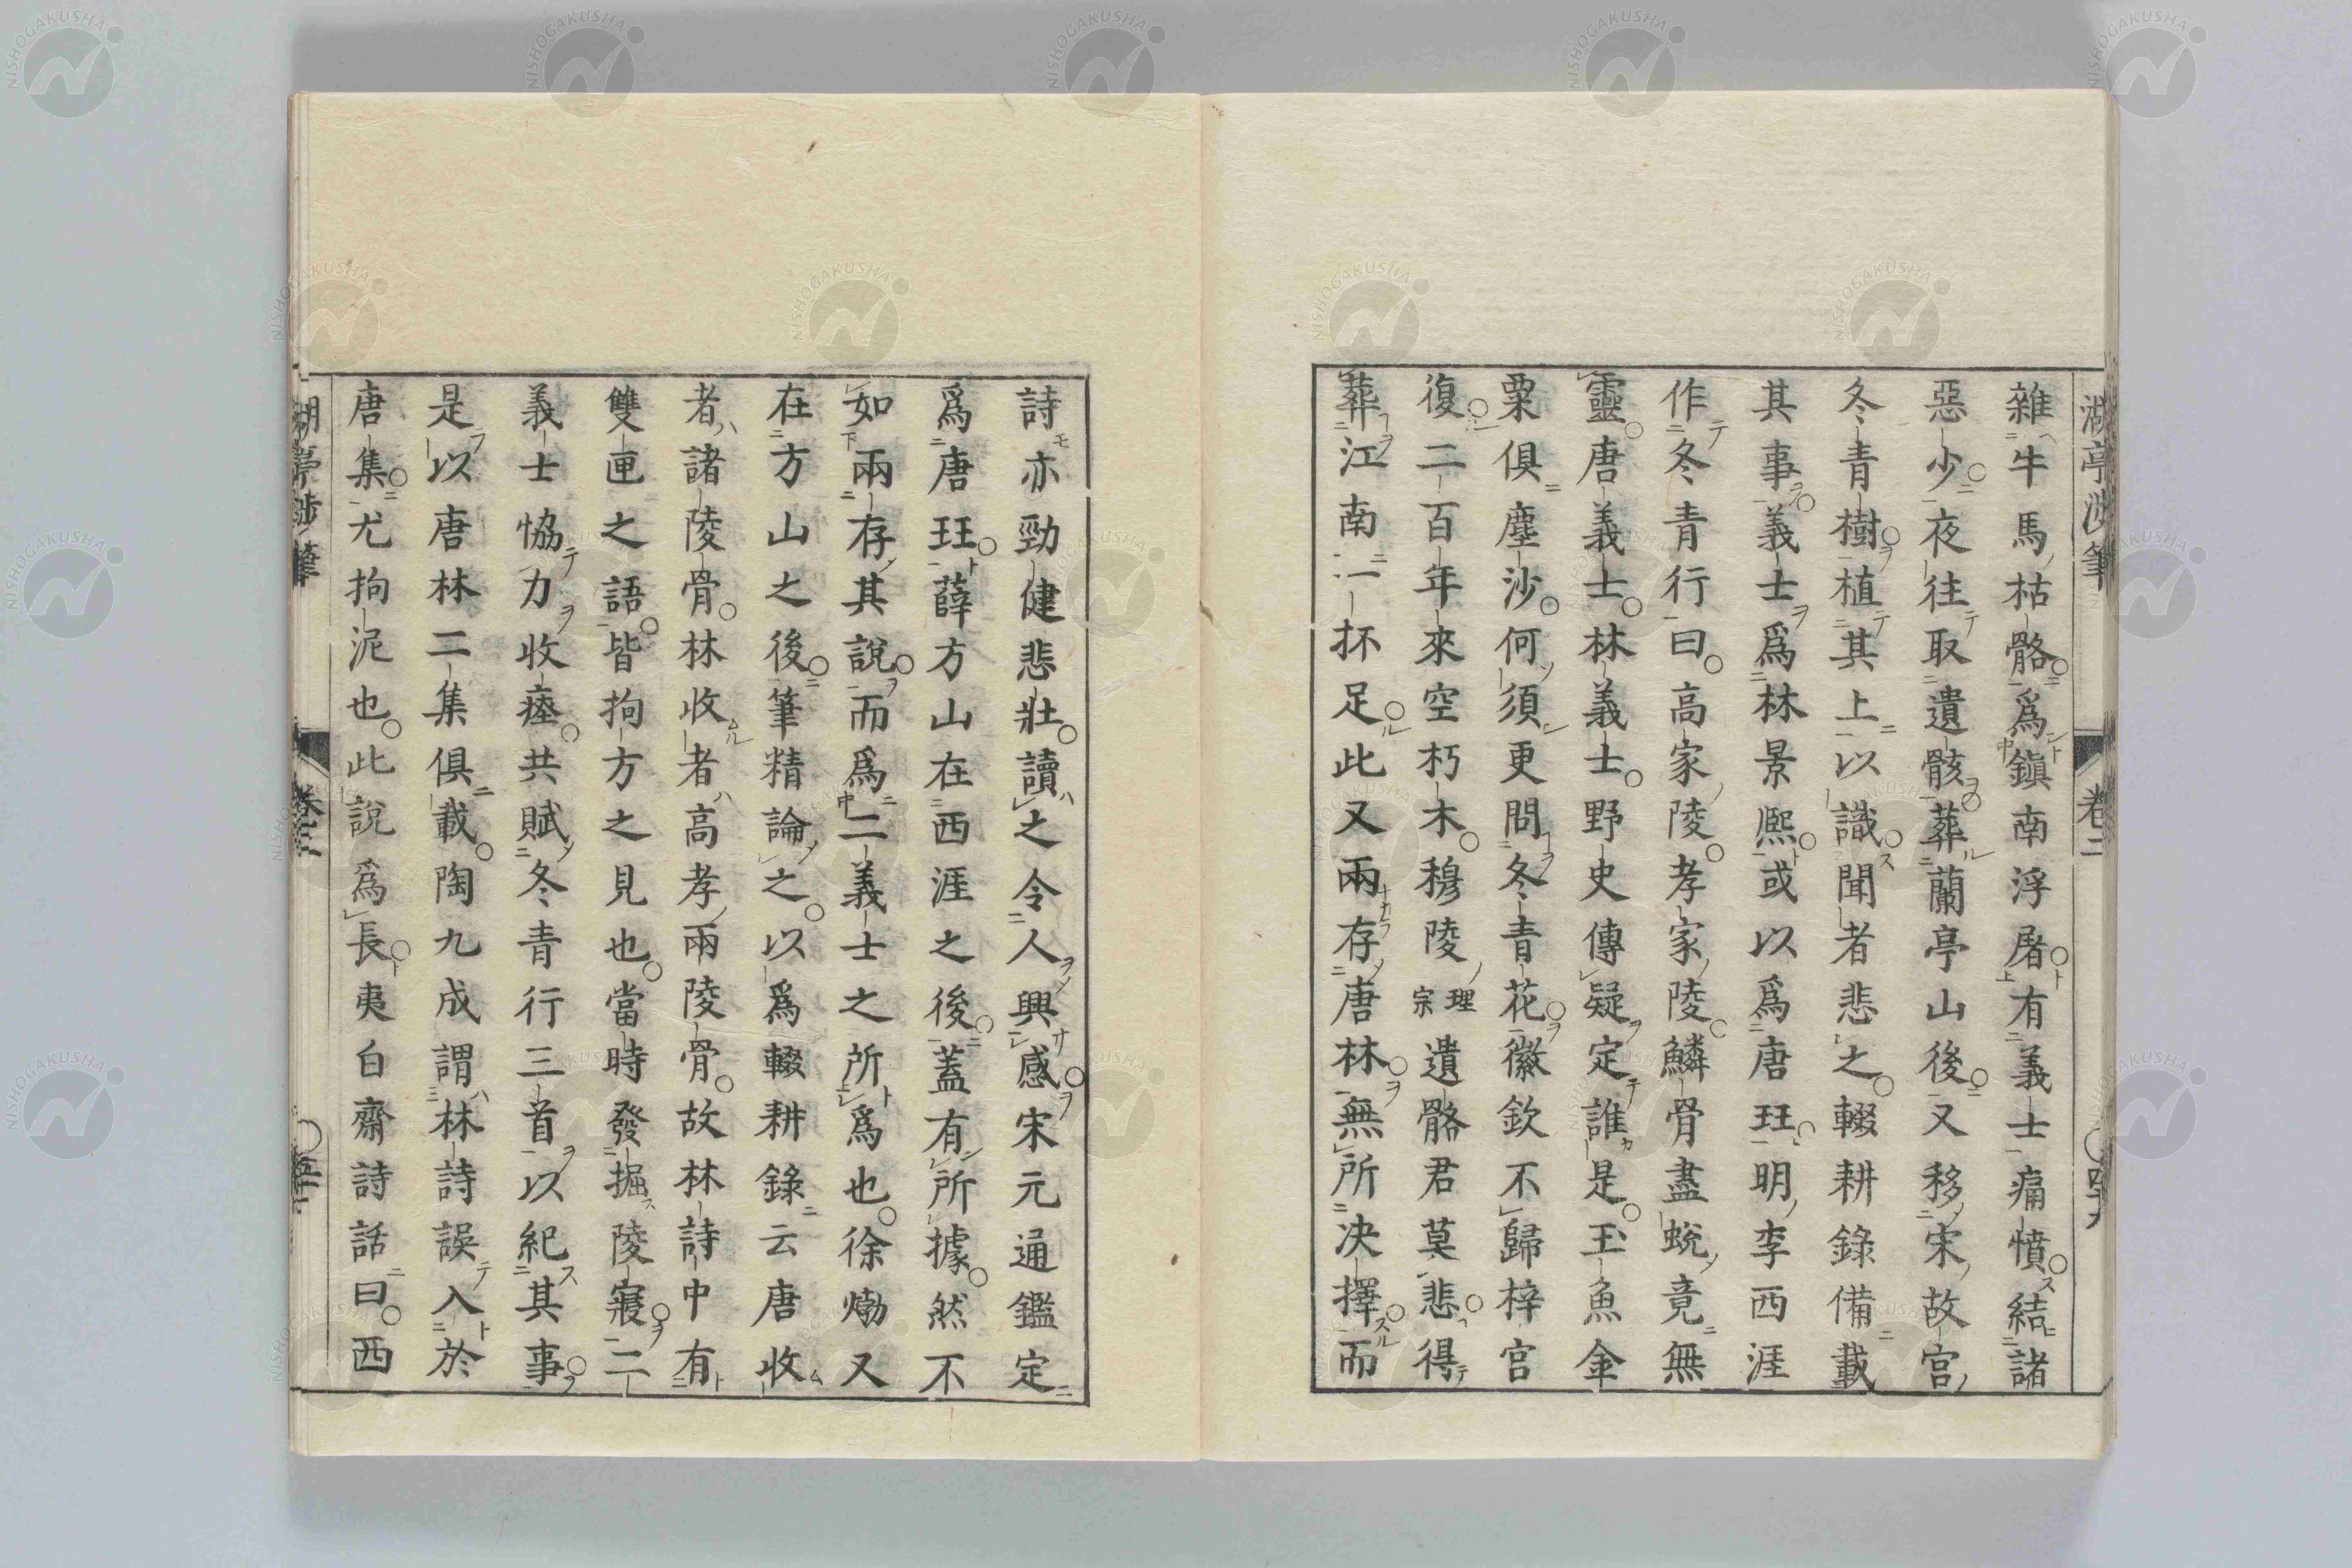 湖亭涉筆 卷三 〇四十九
雜牛馬枯骼爲鎭南浮屠有義士痛憤結諸
惡少夜往取遺骸葬蘭亭山後又移宋故宮
冬青樹植其上以識聞者悲之輟耕錄備載
其事義士爲林景熈或以爲唐玨明李西涯
作冬青行曰高家陵孝家陵鱗骨盡蛻竟無
靈唐義士林義士野史傳疑定誰是玉魚金
粟俱塵沙何須更問冬青花徽欽不歸梓宮
復二百年來空朽木穆陵理宗遺骼君莫悲得
葬江南一抔足此又兩存唐林無所決擇而
詩亦勁健悲壯讀之令人興感宋元通鑑定
爲唐玨薛方山在西涯之後蓋有所據然不
如兩存其說而爲二義士之所爲也徐㶿又
在方山之後筆精論之以爲輟耕錄云唐收
者諸陵骨林收者高孝兩陵骨故林詩中有
雙匣之語皆拘方之見也當時發掘陵寢二
義士協力收瘞共賦冬青行三首以紀其事
是以唐林二集俱載陶九成謂林詩誤入於
唐集尤拘泥也此說爲長夷白齋詩話曰西
湖亭涉筆 卷三 〇五十